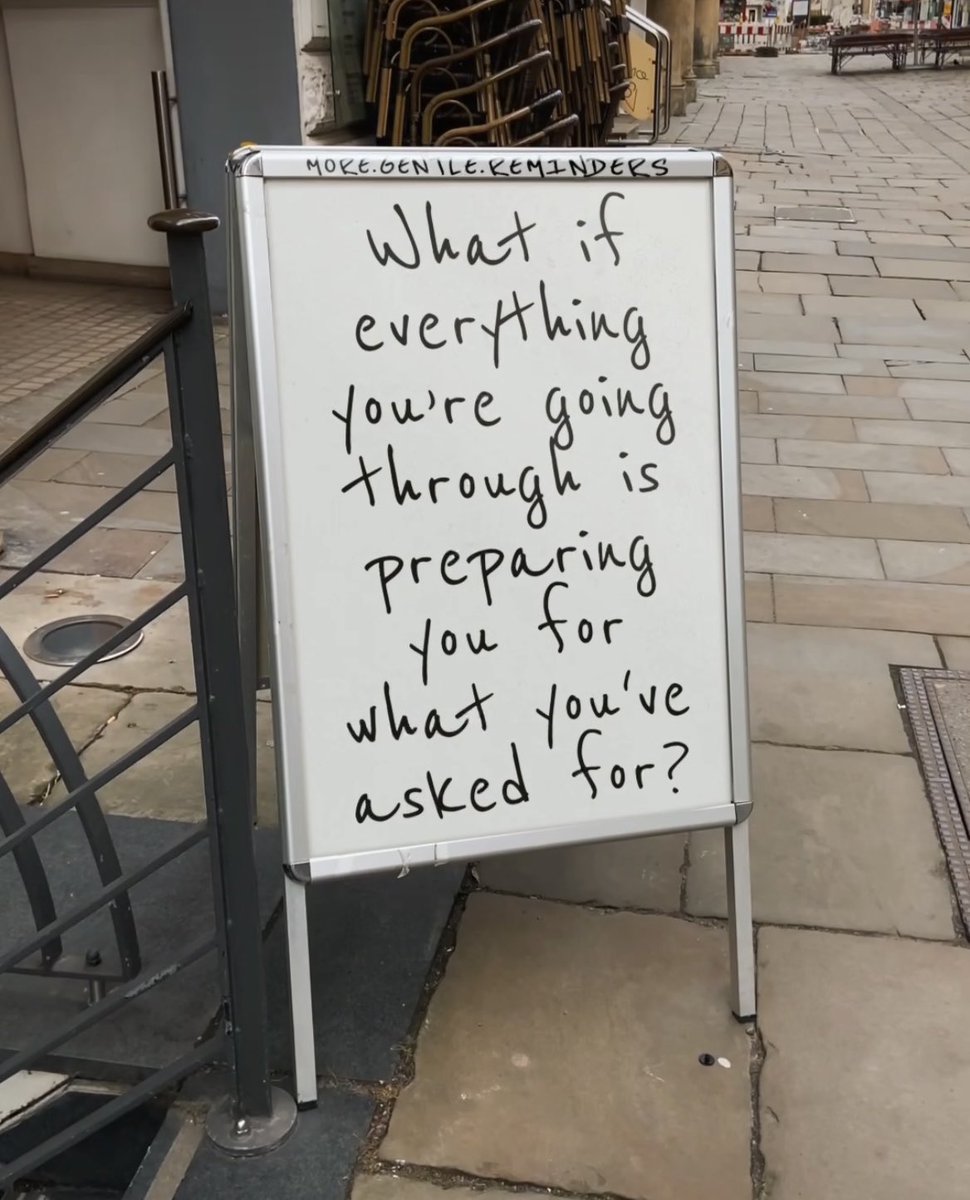 MORE.GENTLE.REMINDERS
What if
everything
you're going
through is
preparing
you for
what you've
asked for?